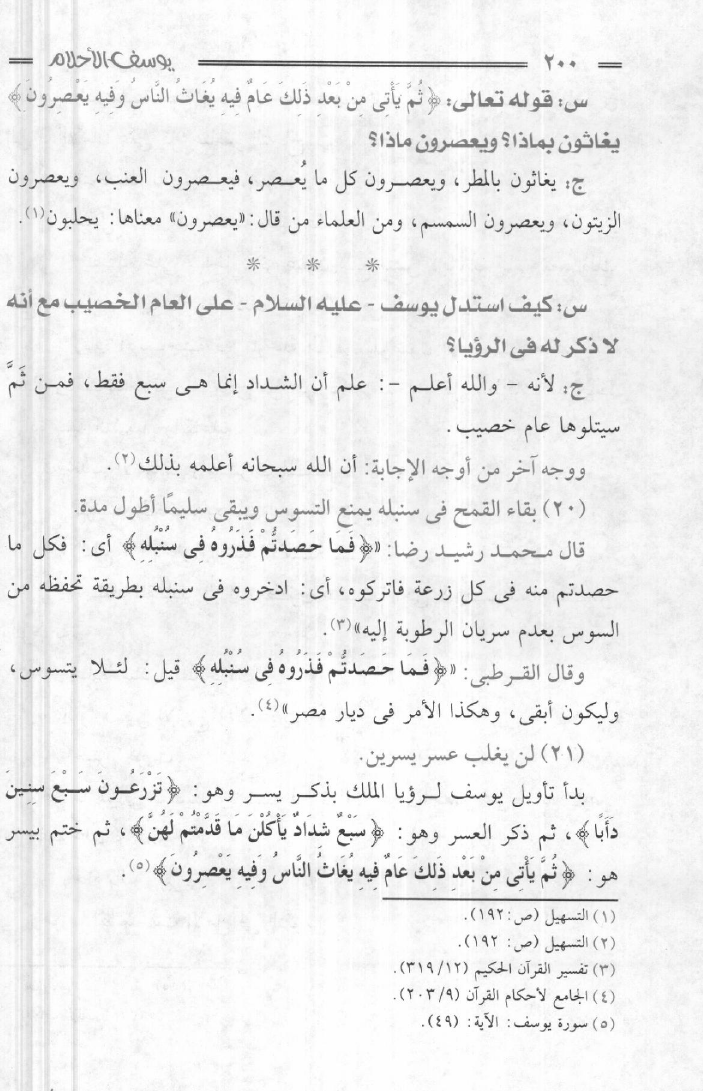 ٢٠٠ يوسف الأحلام
س: قوله تعالى: ﴿ثُمَّ يَأْتِى مِنْ بَعْدِ ذَلِكَ عَامٌ فِيهِ يُغَاثُ النَّاسُ وَفِيهِ يَعْصِرُونَ﴾
يغاثون بماذا؟ ويعصرون ماذا؟
ج: يغاثون بالمطر، ويعصرون كل ما يُعصر، فيعصرون العنب، ويعصرون
الزيتون، ويعصرون السمسم، ومن العلماء من قال: «يعصرون» معناها: يحلبون(١).
* * *
س: كيف استدل يوسف - عليه السلام - على العام الخصيب مع أنه
لا ذكر له فى الرؤيا؟
ج: لأنه - والله أعلم -: علم أن الشداد إنما هى سبع فقط، فمن ثَمَّ
سيتلوها عام خصيب.
ووجه آخر من أوجه الإجابة: أن الله سبحانه أعلمه بذلك(٢).
(٢٠) بقاء القمح فى سنبله يمنع التسوس ويبقى سليمًا أطول مدة.
قال محمد رشيد رضا: «﴿فَمَا حَصَدتُّمْ فَذَرُوهُ فِى سُنْبُلِهِ﴾ أى: فكل ما
حصدتم منه فى كل زرعة فاتركوه، أى: ادخروه فى سنبله بطريقة تحفظه من
السوس بعدم سريان الرطوبة إليه»(٣).
وقال القرطبى: «﴿فَمَا حَصَدتُّمْ فَذَرُوهُ فِى سُنْبُلِهِ﴾ قيل: لئلا يتسوس،
وليكون أبقى، وهكذا الأمر فى ديار مصر»(٤).
(٢١) لن يغلب عسر يسرين.
بدأ تأويل يوسف لرؤيا الملك بذكر يسر وهو: ﴿تَزْرَعُونَ سَبْعَ سِنِينَ
دَأَبًا﴾، ثم ذكر العسر وهو: ﴿سَبْعٌ شِدَادٌ يَأْكُلْنَ مَا قَدَّمْتُمْ لَهُنَّ﴾، ثم ختم بيسر
هو: ﴿ثُمَّ يَأْتِى مِنْ بَعْدِ ذَلِكَ عَامٌ فِيهِ يُغَاثُ النَّاسُ وَفِيهِ يَعْصِرُونَ﴾(٥).
(١) التسهيل (ص: ١٩٢).
(٢) التسهيل (ص: ١٩٢).
(٣) تفسير القرآن الحكيم (٣١٩/١٢).
(٤) الجامع لأحكام القرآن (٢٠٣/٩).
(٥) سورة يوسف: الآية: (٤٩).